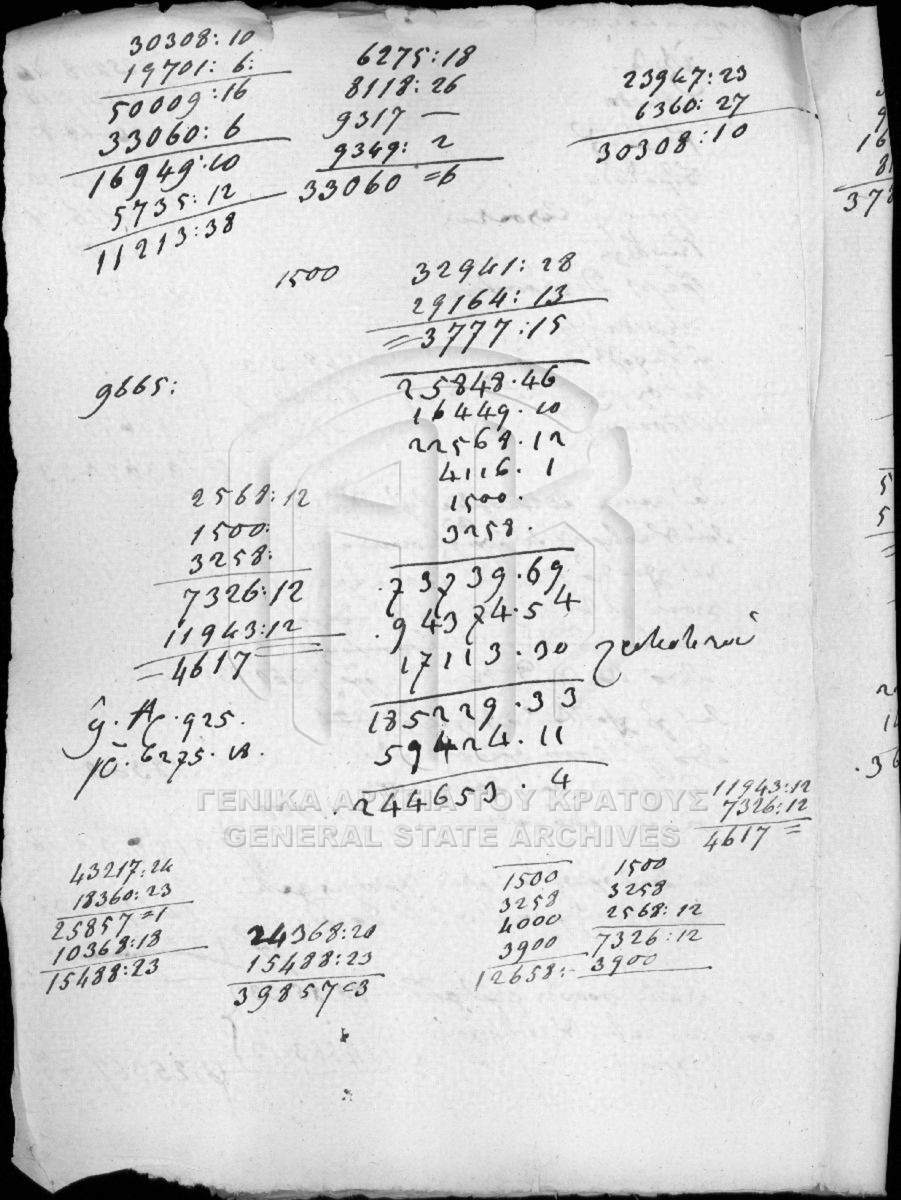 30308:10
19701: 6:
50009:16
33060: 6
16949:10
5735:12
11213:38
6275:18
8118:26
9317 —
9349: 2
33060 =6
23947:23
6360: 27
30308:10
1500
32941:28
29164:13
=3777:15
9665:
25848.46
16449.10
22568.12
4116. 1
1500.
3258.
73739.69
94374.54
17113.30
185229.33
59424.11
244653.4
2568:12
1500:
3258:
7326:12
11943:12
4617
925.
10. 6275.18.
ΓΕΝΙΚΑ ΑΡΧΕΙΑ ΤΟΥ ΚΡΑΤΟΥΣ
GENERAL STATE ARCHIVES
11943:12
7326:12
4617 =
43217:24
18360:23
25857=1
10368:18
15488:23
24368:20
15488:23
39857=3
1500
3258
4000
3900
12658:-
1500
3258
2568:12
7326:12
3900